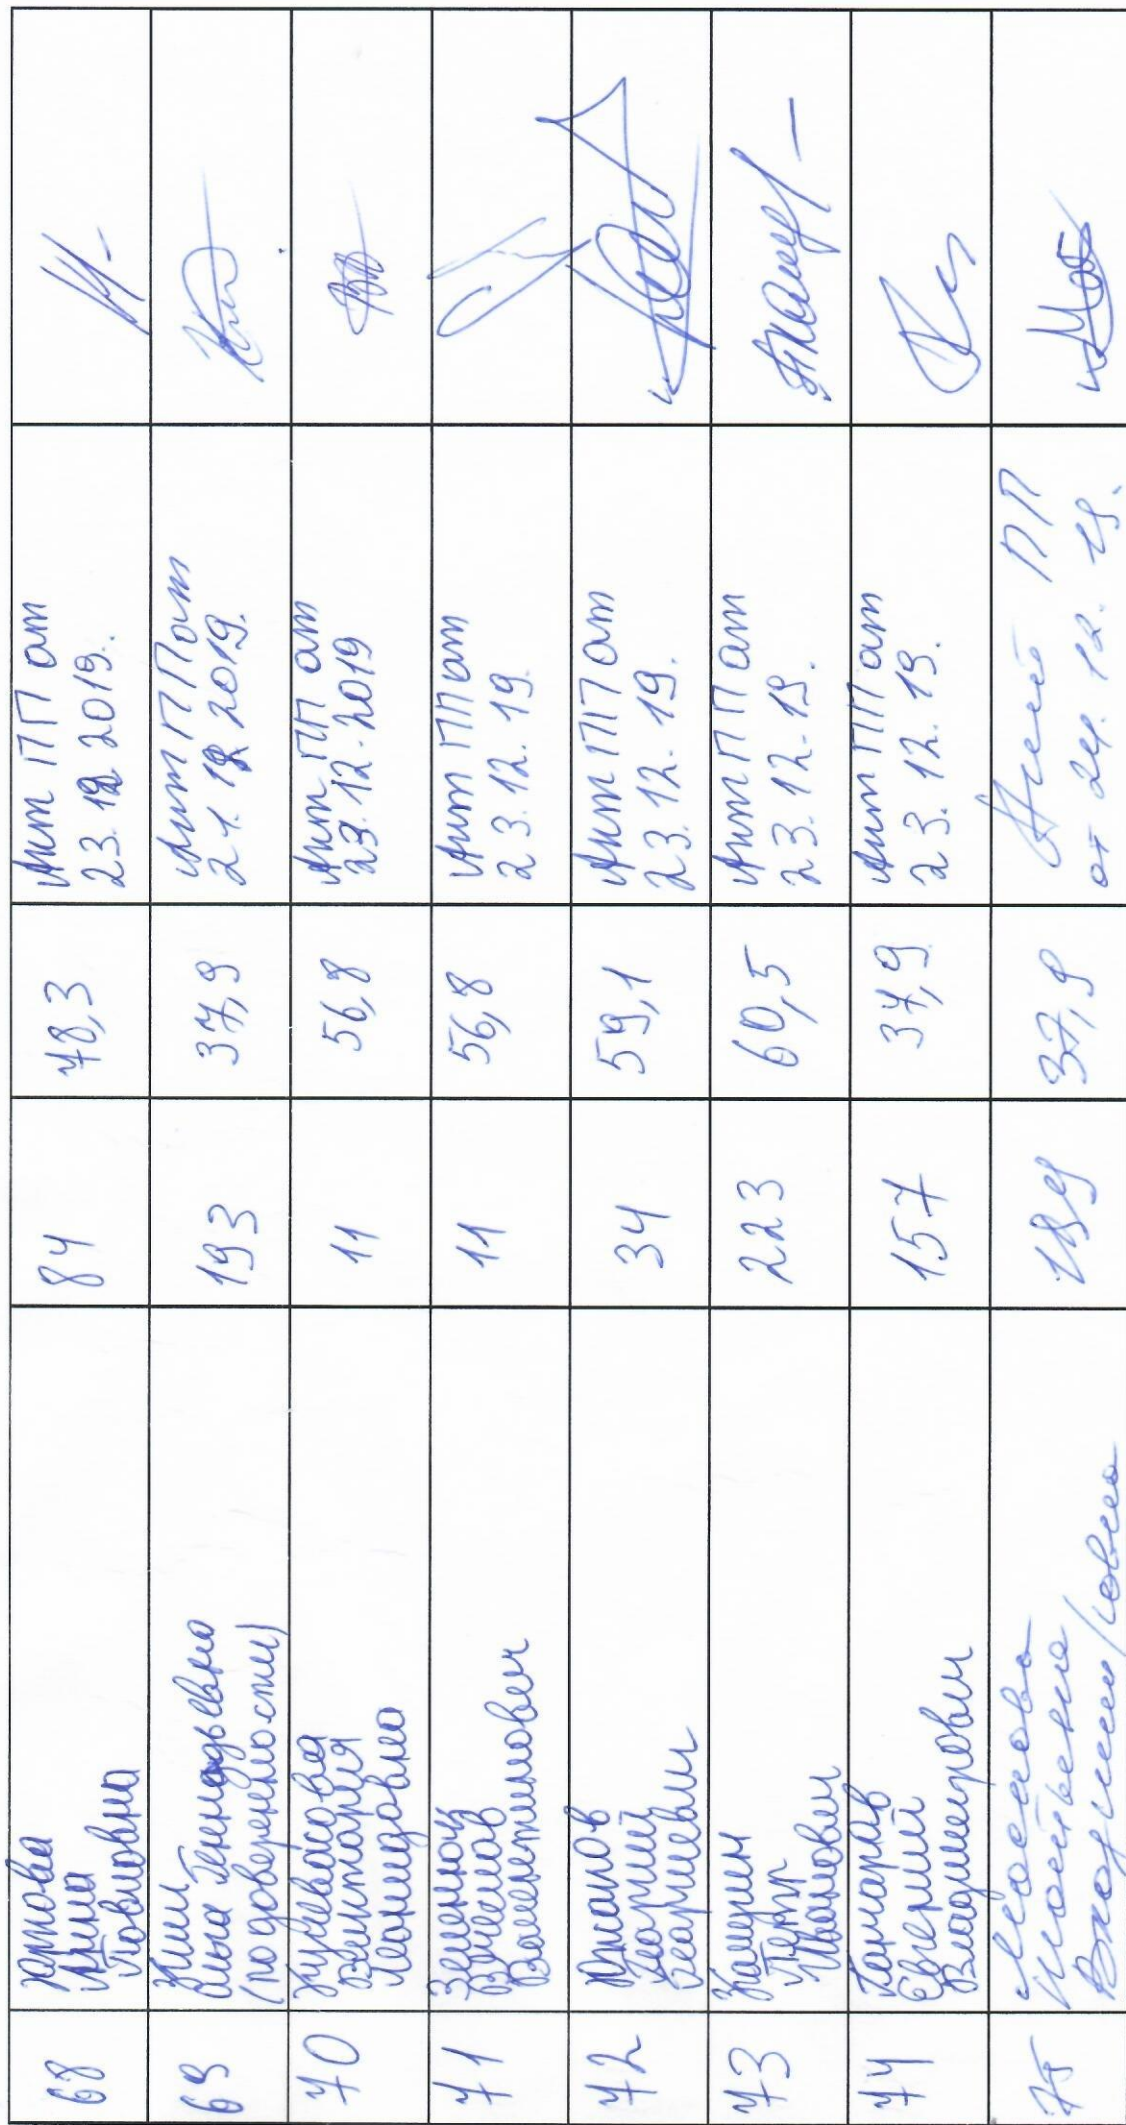 68
Ирина
Павловна
84
78,3
Акт ПП от
23.12.2019.
69
Ким
Анна Геннадьевна
(по доверенности)
193
37,9
Акт ПП от
21.12.2019.
70
Виктория
Леонидовна
11
56,8
Акт ПП от
23.12.2019
71
Вячеслав
Валентинович
11
56,8
Акт ПП от
23.12.19.
72
Юрканов
Георгий
Георгиевич
34
59,1
Акт ПП от
23.12.19.
73
Петр
Иванович
223
60,5
Акт ПП от
23.12.19.
74
Гончаров
Евгений
Владимирович
157
37,9
Акт ПП от
23.12.19.
75
37,9
ПП
от 24.12.19.